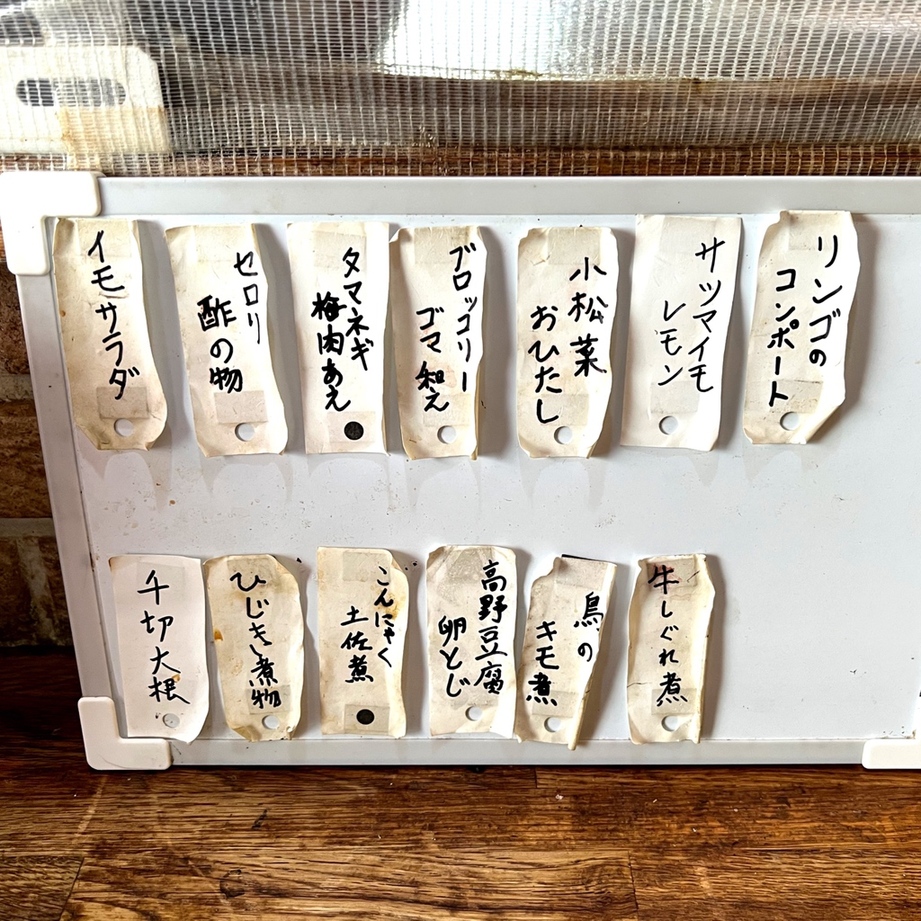 イモサラダ
セロリ
酢の物
タマネギ
梅肉あえ
ブロッコリー
ゴマ和え
小松菜
おひたし
サツマイモ
レモン
リンゴの
コンポート
千切大根
ひじき煮物
こんにゃく
土佐煮
高野豆腐
卵とじ
鳥の
キモ煮
牛しぐれ煮